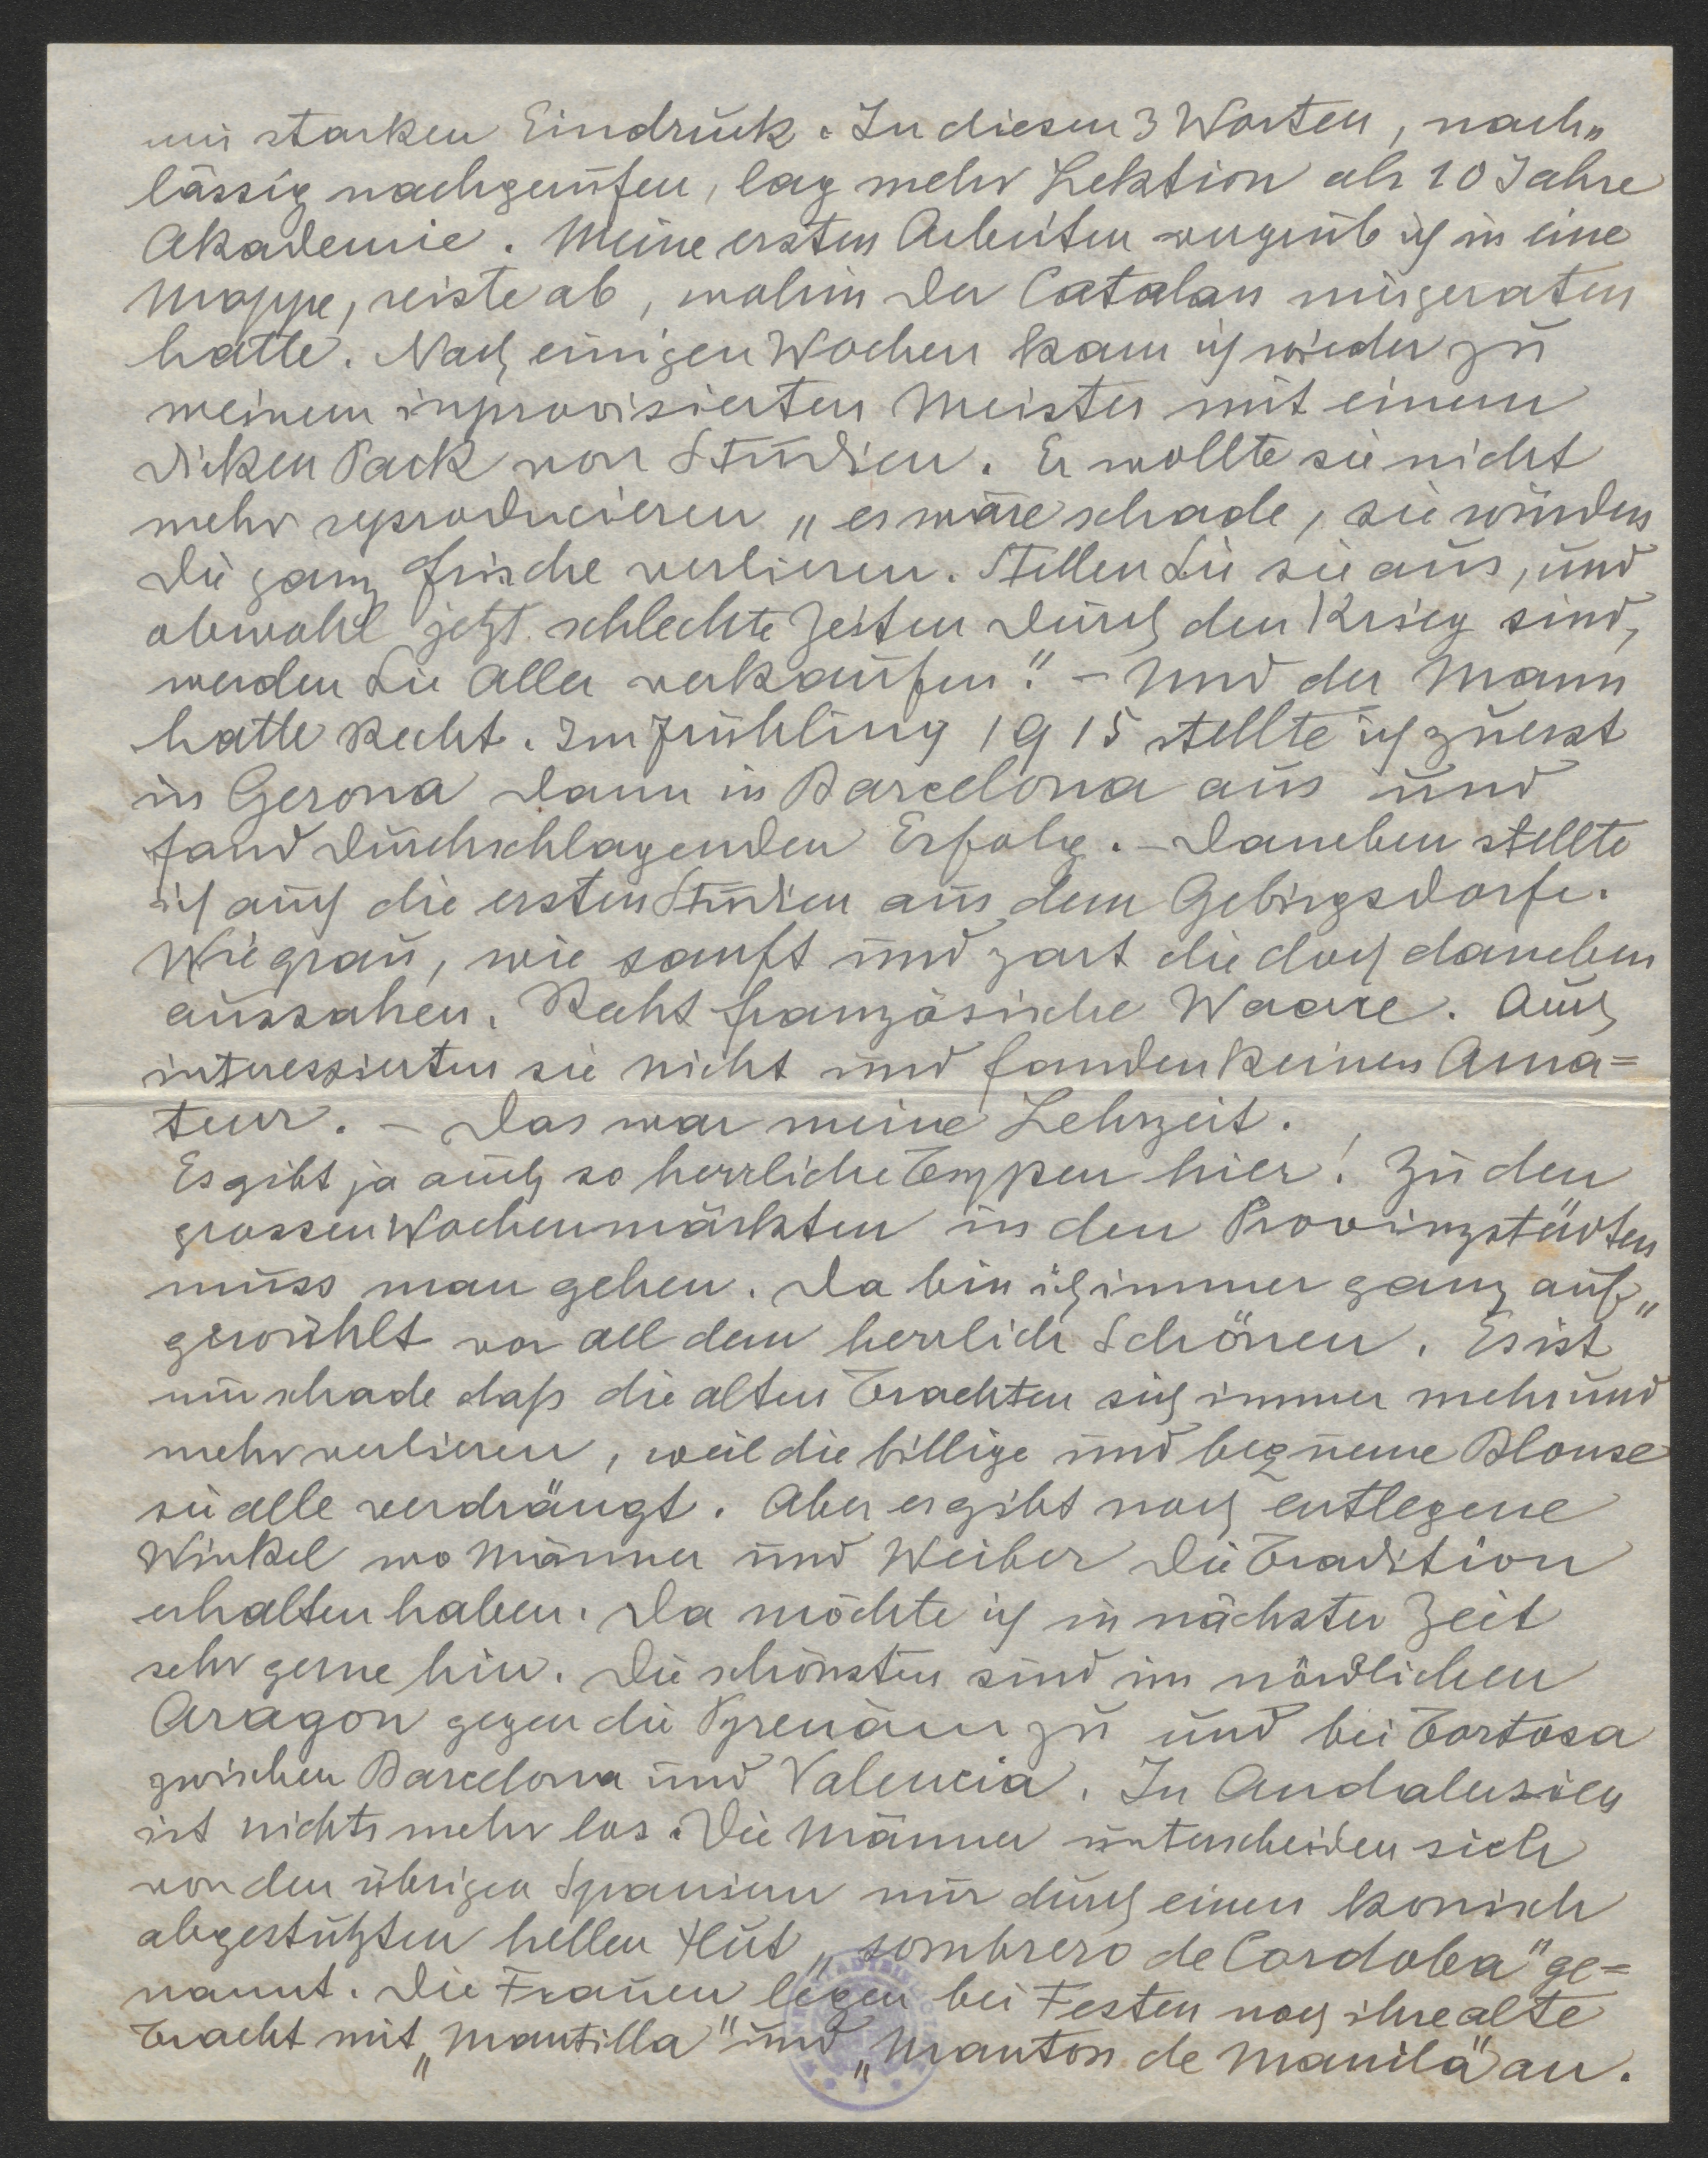 mir starken Eindruck. In diesen 3 Worten, nach„
lässig nachgerufen, lag mehr Lektion als 10 Jahre
Akademie. Meine ersten Arbeiten vergrub ich in eine
Mappe, reiste ab, wohin der Catalan mir geraten
hatte. Nach einigen Wochen kam ich wieder zu
meinem inprovisierten Meister mit einem
dicken Pack von Studien. Er wollte sie nicht
mehr reproducieren „es wäre schade, sie würden
die ganz Frische verlieren. Stellen Sie sie aus, und
obwohl jetzt schlechte Zeiten durch den Krieg sind,
werden Sie Alles verkaufen". – Und der Mann
hatte Recht. Im Frühling 1915 stellte ich zuerst
in Gerona dann in Barcelona aus und
fand durchschlagenden Erfolg. – Daneben stellte
ich auch die ersten Studien aus dem Gebirgsdorfe.
Wie grau, wie sanft und zart die doch daneben
aussahen. Recht französische Waare. Auch
interessierten sie nicht und fanden keinen Ama=
teur. – Das war meine Lehrzeit.
Es gibt ja auch so herrliche Typen hier! Zu den
grossen Wochenmärkten in den Provinzstädten
muss man gehen. Da bin ich immer ganz auf„
gewühlt vor all dem herrlich Schönen. Es ist
nur schade daß die alten Trachten sich immer mehr und
mehr verlieren, weil die billige und bequeme Blouse
sie alle verdrängt. Aber es gibt noch entlegene
Winkel wo Männer und Weiber die Tradition
erhalten haben. Da möchte ich in nächster Zeit
sehr gerne hin. Die schönsten sind im nördlichen
Aragon gegen die Pyrenäen zu und bei Tortosa
zwischen Barcelona und Valencia. In Andalusien
ist nichts mehr los. Die Männer unterscheiden sich
von den übrigen Spaniern nur durch einen konisch
abgestutzten hellen Hut „sombrero de Cordoba" ge=
nannt. Die Frauen legen bei Festen noch ihre alte
Tracht mit „Mantilla" und „Manton de Manila" an.